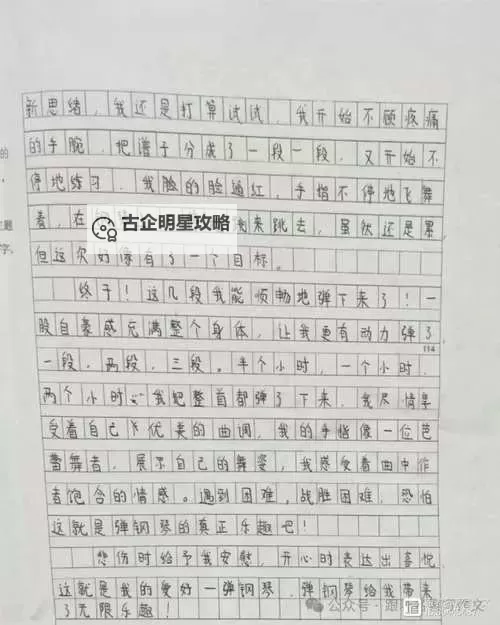 新思绪，我还是打算试试，我开始不顾疼痛
的手腕，把谱子分成了一段一段，又开始不
停地练习，我脸的脸通红，手指不停地飞舞
着，在 跳来跳去，虽然还是累，
古企明星攻略
但这次好像有了一个目标。
终于！这几段我能顺畅地弹下来了！一
股自豪感充满整个身体，让我更有动力弹了
114
一段，两段，三段。半个小时，一个小时，
两个小时……我把整首都弹了下来，我尽情享
受着自己下优美的曲调，我的手指像一位芭
蕾舞者，展示自己的舞姿，我感受着曲中作
者饱含的情感。遇到困难，战胜困难，恐怕
这就是弹钢琴的真正乐趣吧！
悲伤时给予我安慰，开心时表达出喜悦
这就是我的爱好一弹钢琴，弹钢琴给我带来
了无限乐趣！
公众号·跟 作文
的
主题
字，